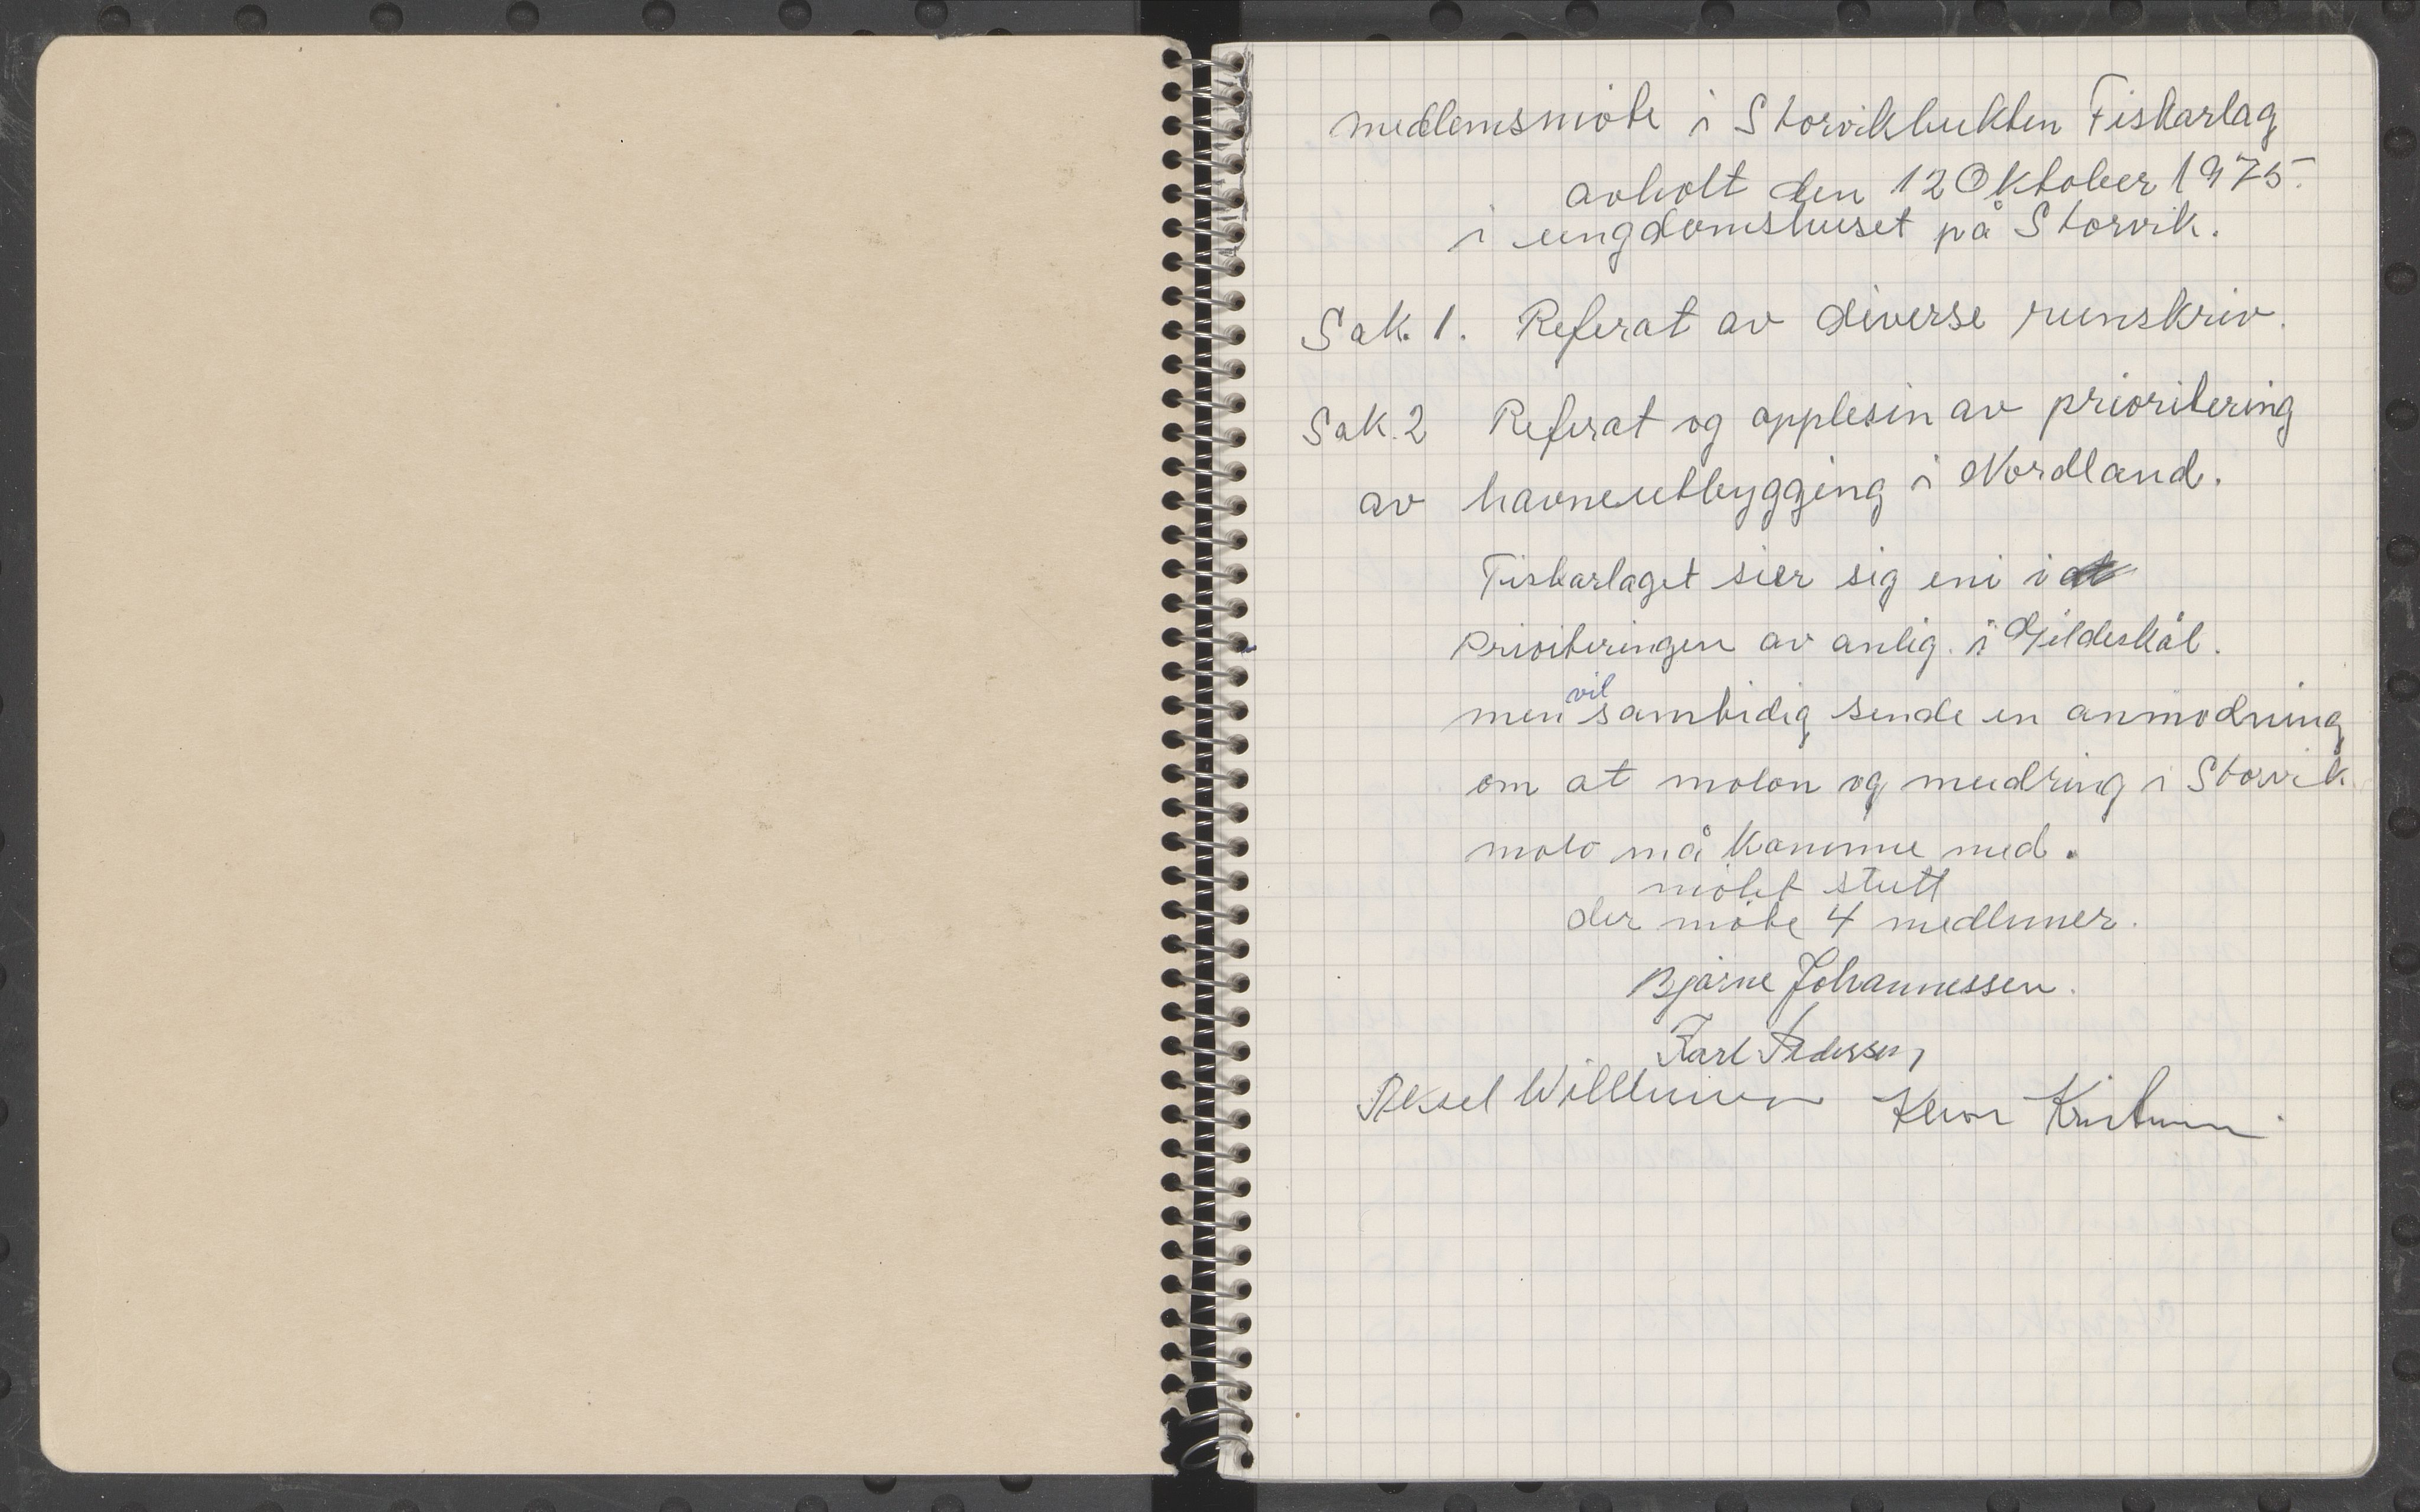 medlemsmöte i Storvikbukten Fiskarlag
avholt den 12 Oktober 1975.
i ungdomshuset på Storvik.
Sak. 1. Referat av diverse runskriv.
Sak. 2 Referat og opplesin av prioritering
av havneutbygging i Nordland.
Fiskarlaget sier sig eni i at
prioriteringen av anlig. i Gildeskål.
men vil samtidig sende en anmodning
om at molon og mudring i Storvik
molo må komme med.
mötet slutt
der möte 4 medlemer.
Bjarne Johannessen.
Karl Pedersen
Aksel Willumsen